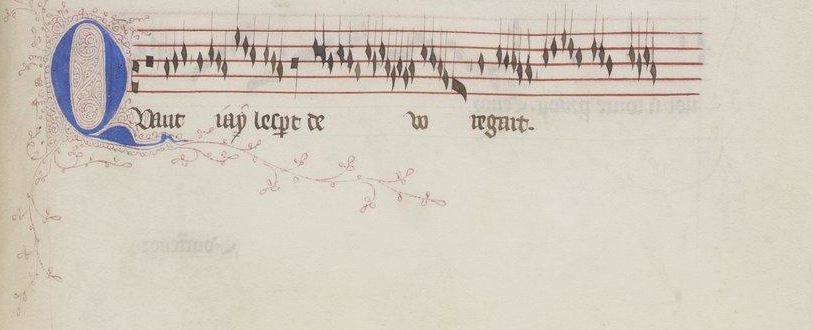 Quant iay lespt de vo regart.